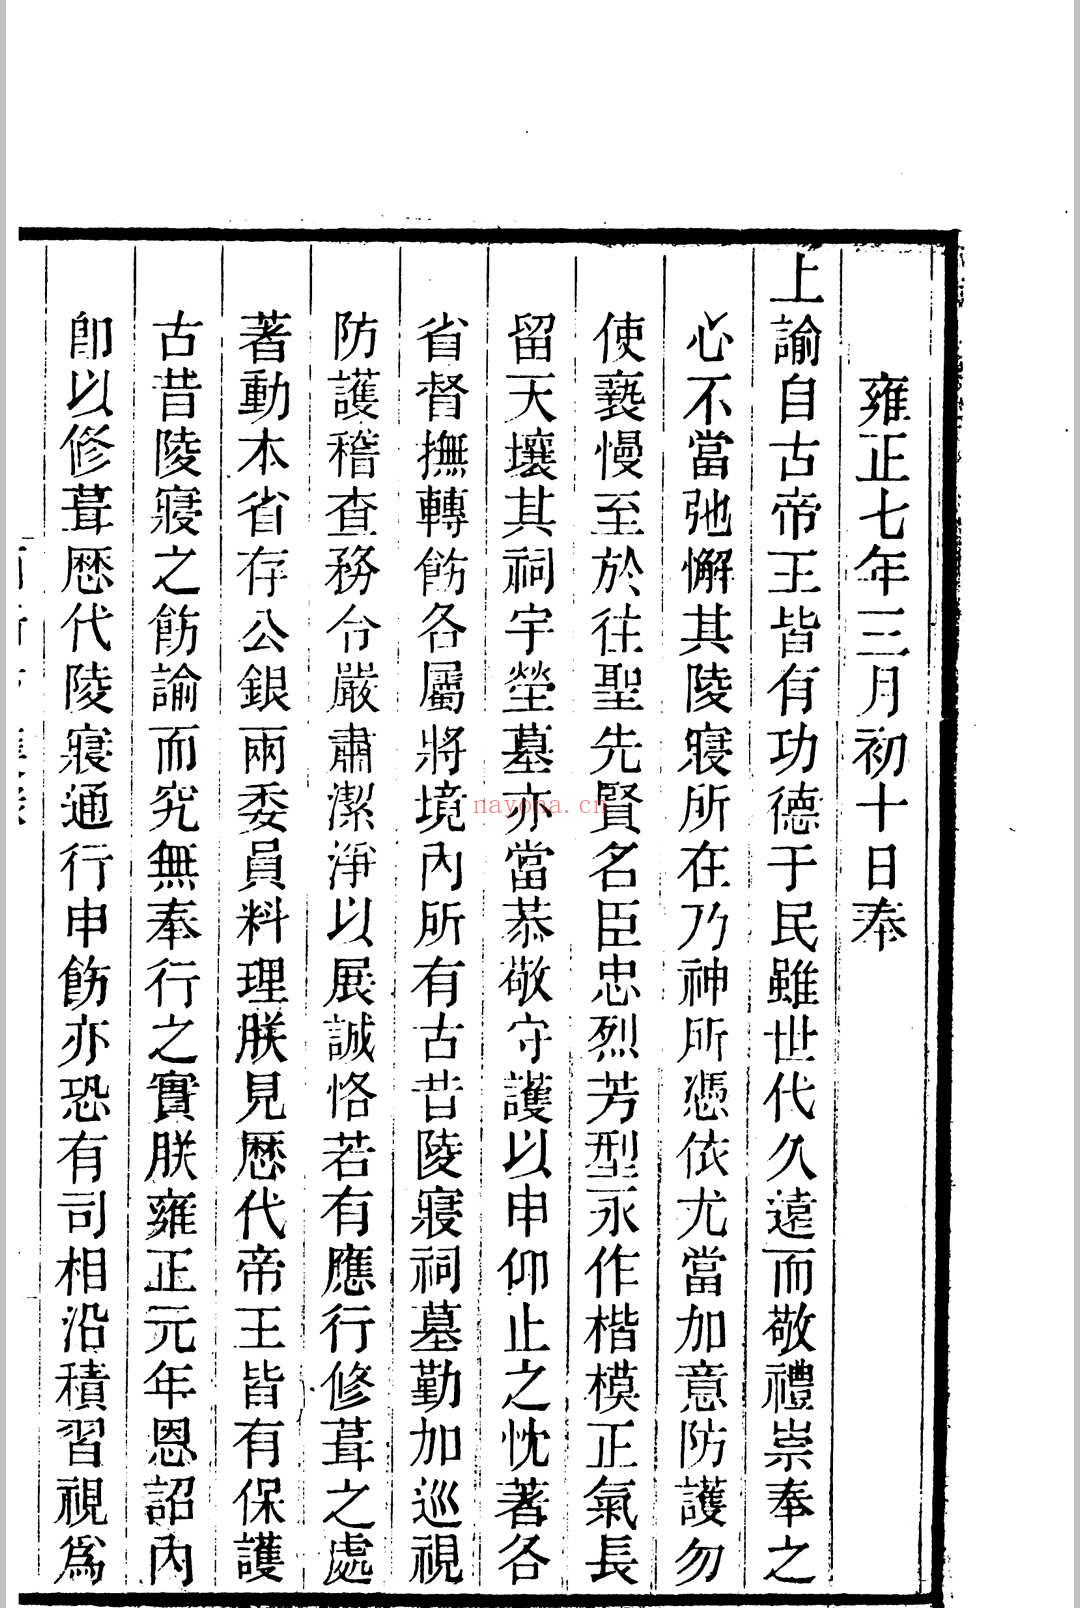 雍正七年三月初十日奉
上諭自古帝王皆有功德于民雖世代久遠而敬禮崇奉之
心不當弛懈其陵寢所在乃神所憑依尤當加意防護勿
使褻慢至於往聖先賢名臣忠烈芳型永作楷模正氣長
留天壤其祠宇塋墓亦當恭敬守護以申仰止之忱著各
省督撫轉飭各屬將境內所有古昔陵寢祠墓勤加巡視
防護稽查務令嚴肅潔淨以展誠恪若有應行修葺之處
著動本省存公銀兩委員料理朕見歷代帝王皆有保護
古昔陵寢之飭諭而究無奉行之實朕雍正元年恩詔內
卽以修葺歷代陵寢通行申飭亦恐有司相沿積習視爲
nayona.cn